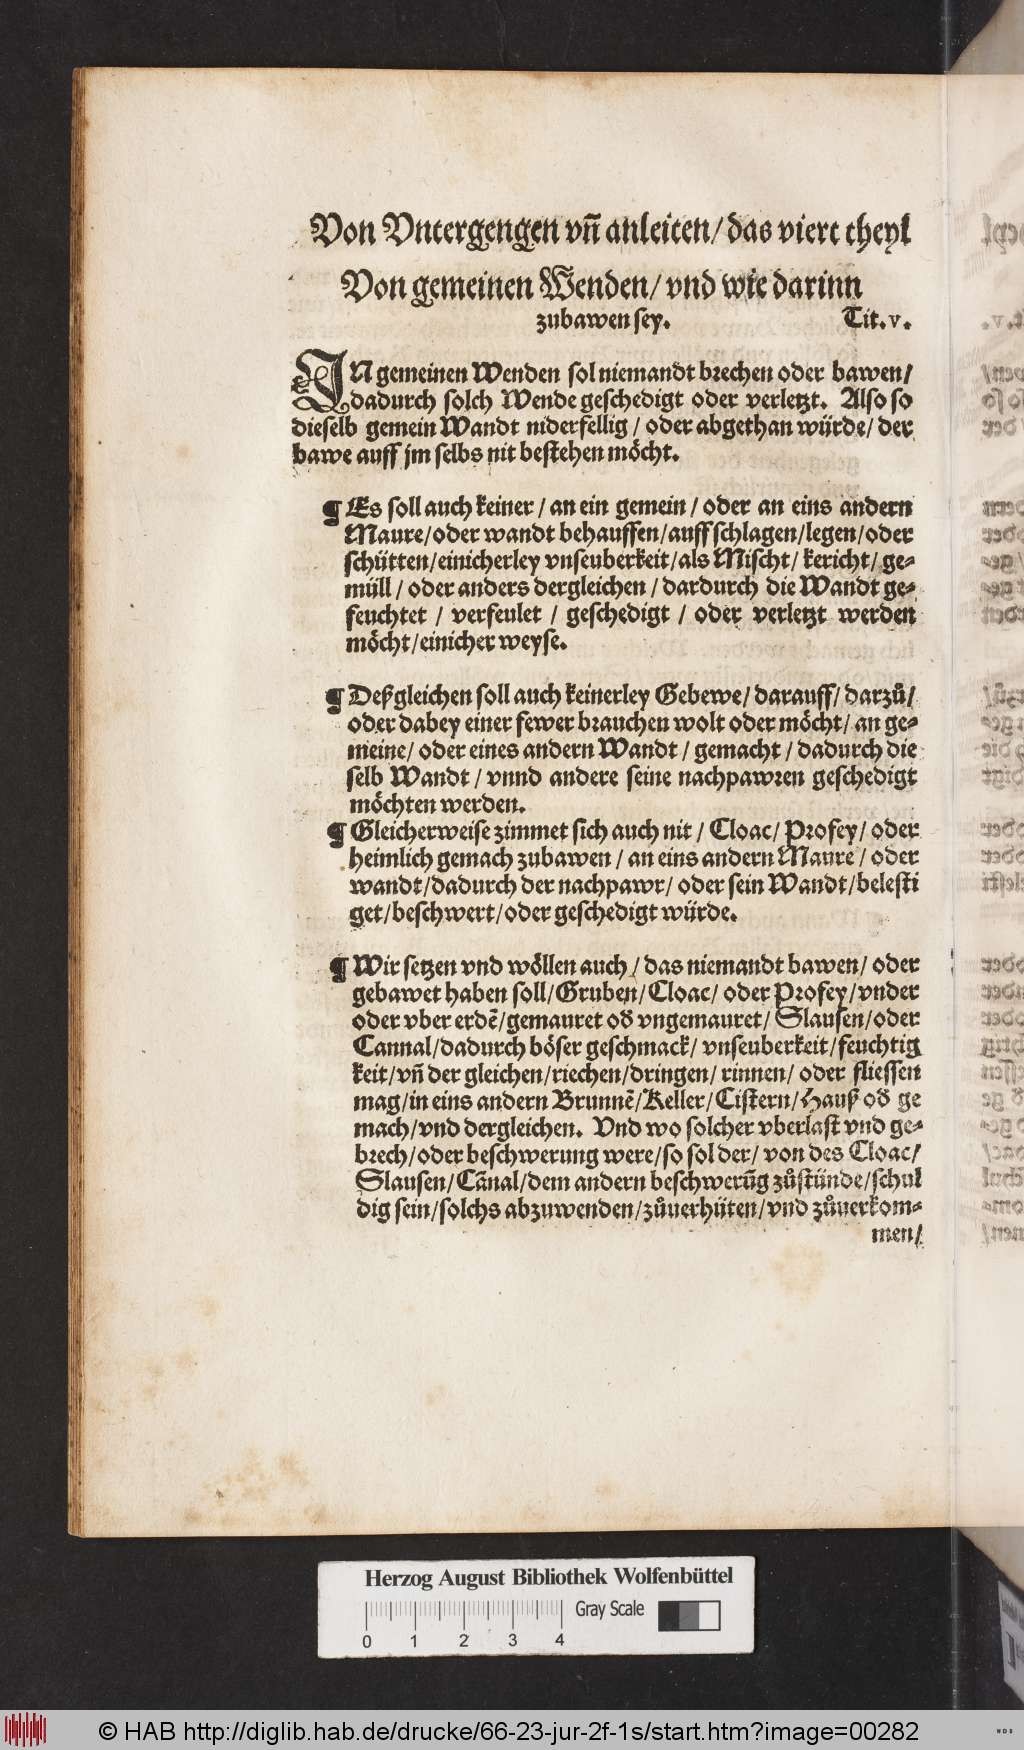 Von Vntergengen vñ anleiten/ das viert theyl
Von gemeinen Wenden/ vnd wie darinn
zubawen sey. Tit. v.
IN gemeinen Wenden sol niemandt brechen oder bawen/
dadurch solch Wende geschedigt oder verletzt. Also so
dieselb gemein Wandt niderfellig / oder abgethan würde/ der
bawe auff jm selbs nit bestehen möcht.
¶ Es soll auch keiner / an ein gemein / oder an eins andern
Maure/oder wandt behauffen/auff schlagen/legen/oder
schütten/einicherley vnseuberkeit/als Mischt/ kericht/ ge⸗
müll / oder anders dergleichen / dardurch die Wandt ge⸗
feuchtet / verfeulet / geschedigt / oder verletzt werden
möcht/einicher weyse.
¶ Deßgleichen soll auch keinerley Gebewe/ darauff/ darzů/
oder dabey einer fewer brauchen wolt oder möcht/ an ge⸗
meine/ oder eines andern Wandt / gemacht / dadurch die
selb Wandt / vnnd andere seine nachpawren geschedigt
möchten werden.
¶ Gleicherweise zimmet sich auch nit / Cloac/ Profey/ oder
heimlich gemach zubawen / an eins andern Maure / oder
wandt/dadurch der nachpawr/ oder sein Wandt/belesti
get/beschwert/oder geschedigt würde.
¶ Wir setzen vnd wöllen auch / das niemandt bawen/ oder
gebawet haben soll/Gruben/Cloac/ oder Profey/vnder
oder vber erdẽ/gemauret oď vngemauret/ Slausen/oder
Cannal/dadurch böser geschmack/ vnseuberkeit/feuchtig
keit/vñ der gleichen/riechen/dringen/ rinnen/ oder fliessen
mag/in eins andern Brunnẽ/Keller/Cistern/Hauß oď ge
mach/vnd dergleichen. Vnd wo solcher vberlast vnd ge⸗
brech/oder beschwerung were/so sol der/ von des Cloac/
Slausen/Cãnal/dem andern beschwerũg zůstünde/schul
dig sein/solchs abzuwenden/zůuerhüten/vnd zůuerkom⸗
men/
Herzog August Bibliothek Wolfenbüttel
Gray Scale
0 1 2 3 4
© HAB http://diglib.hab.de/drucke/66-23-jur-2f-1s/start.htm?image=00282